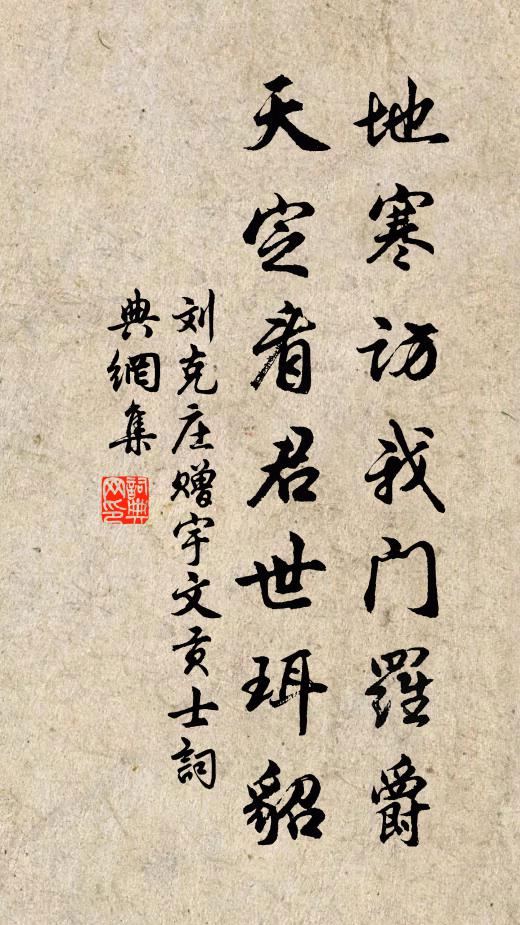 地寒访我门羅爵
天定看君世珥貂
刘克庄赠宇文贡士詞
典網集
詞典
网印